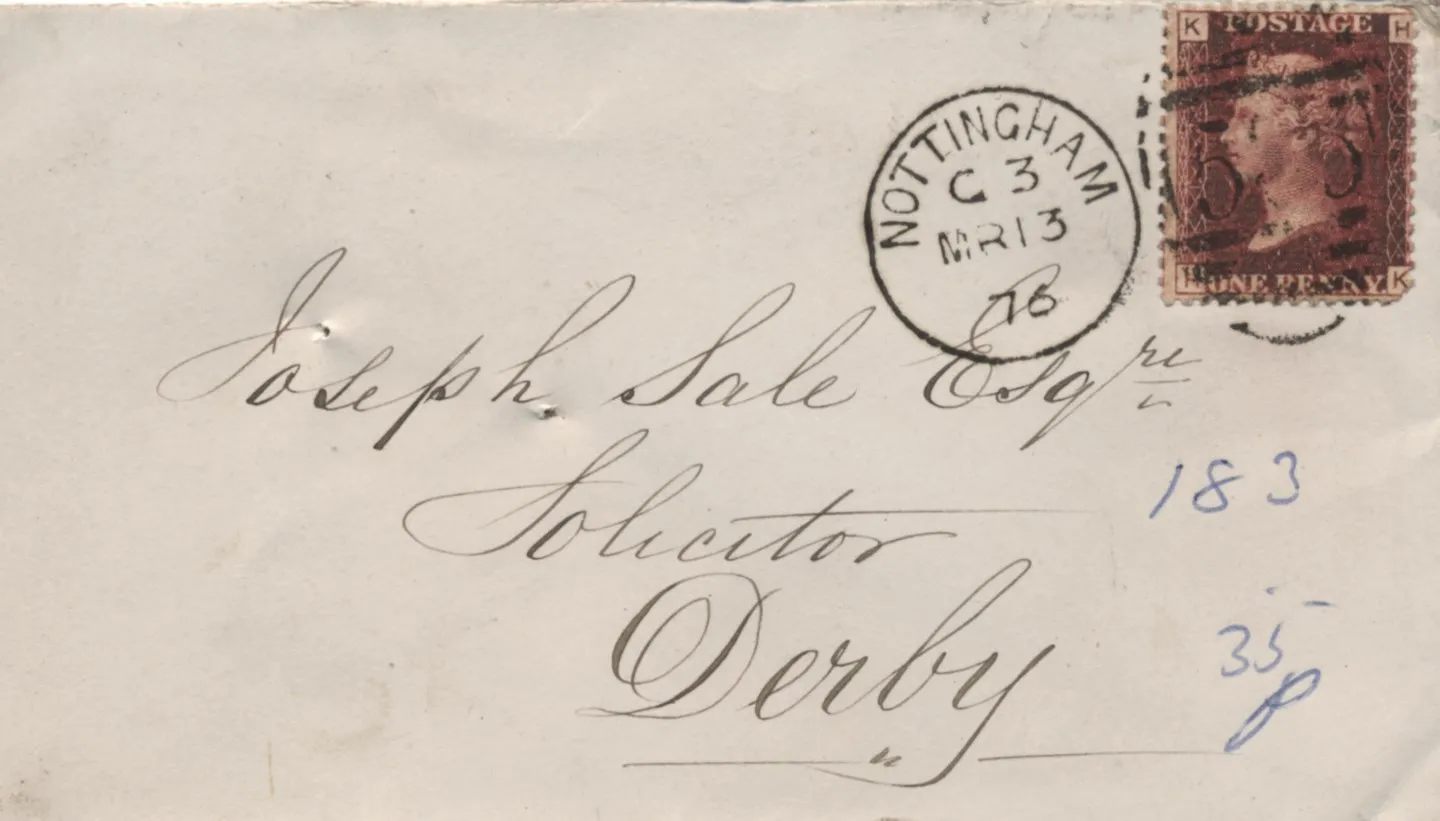 K POSTAGE H
NOTTINGHAM
C 3
MR 13
76
5 3
H ONE PENNY K
Joseph Sale Esqre
Solicitor
Derby
183
35p